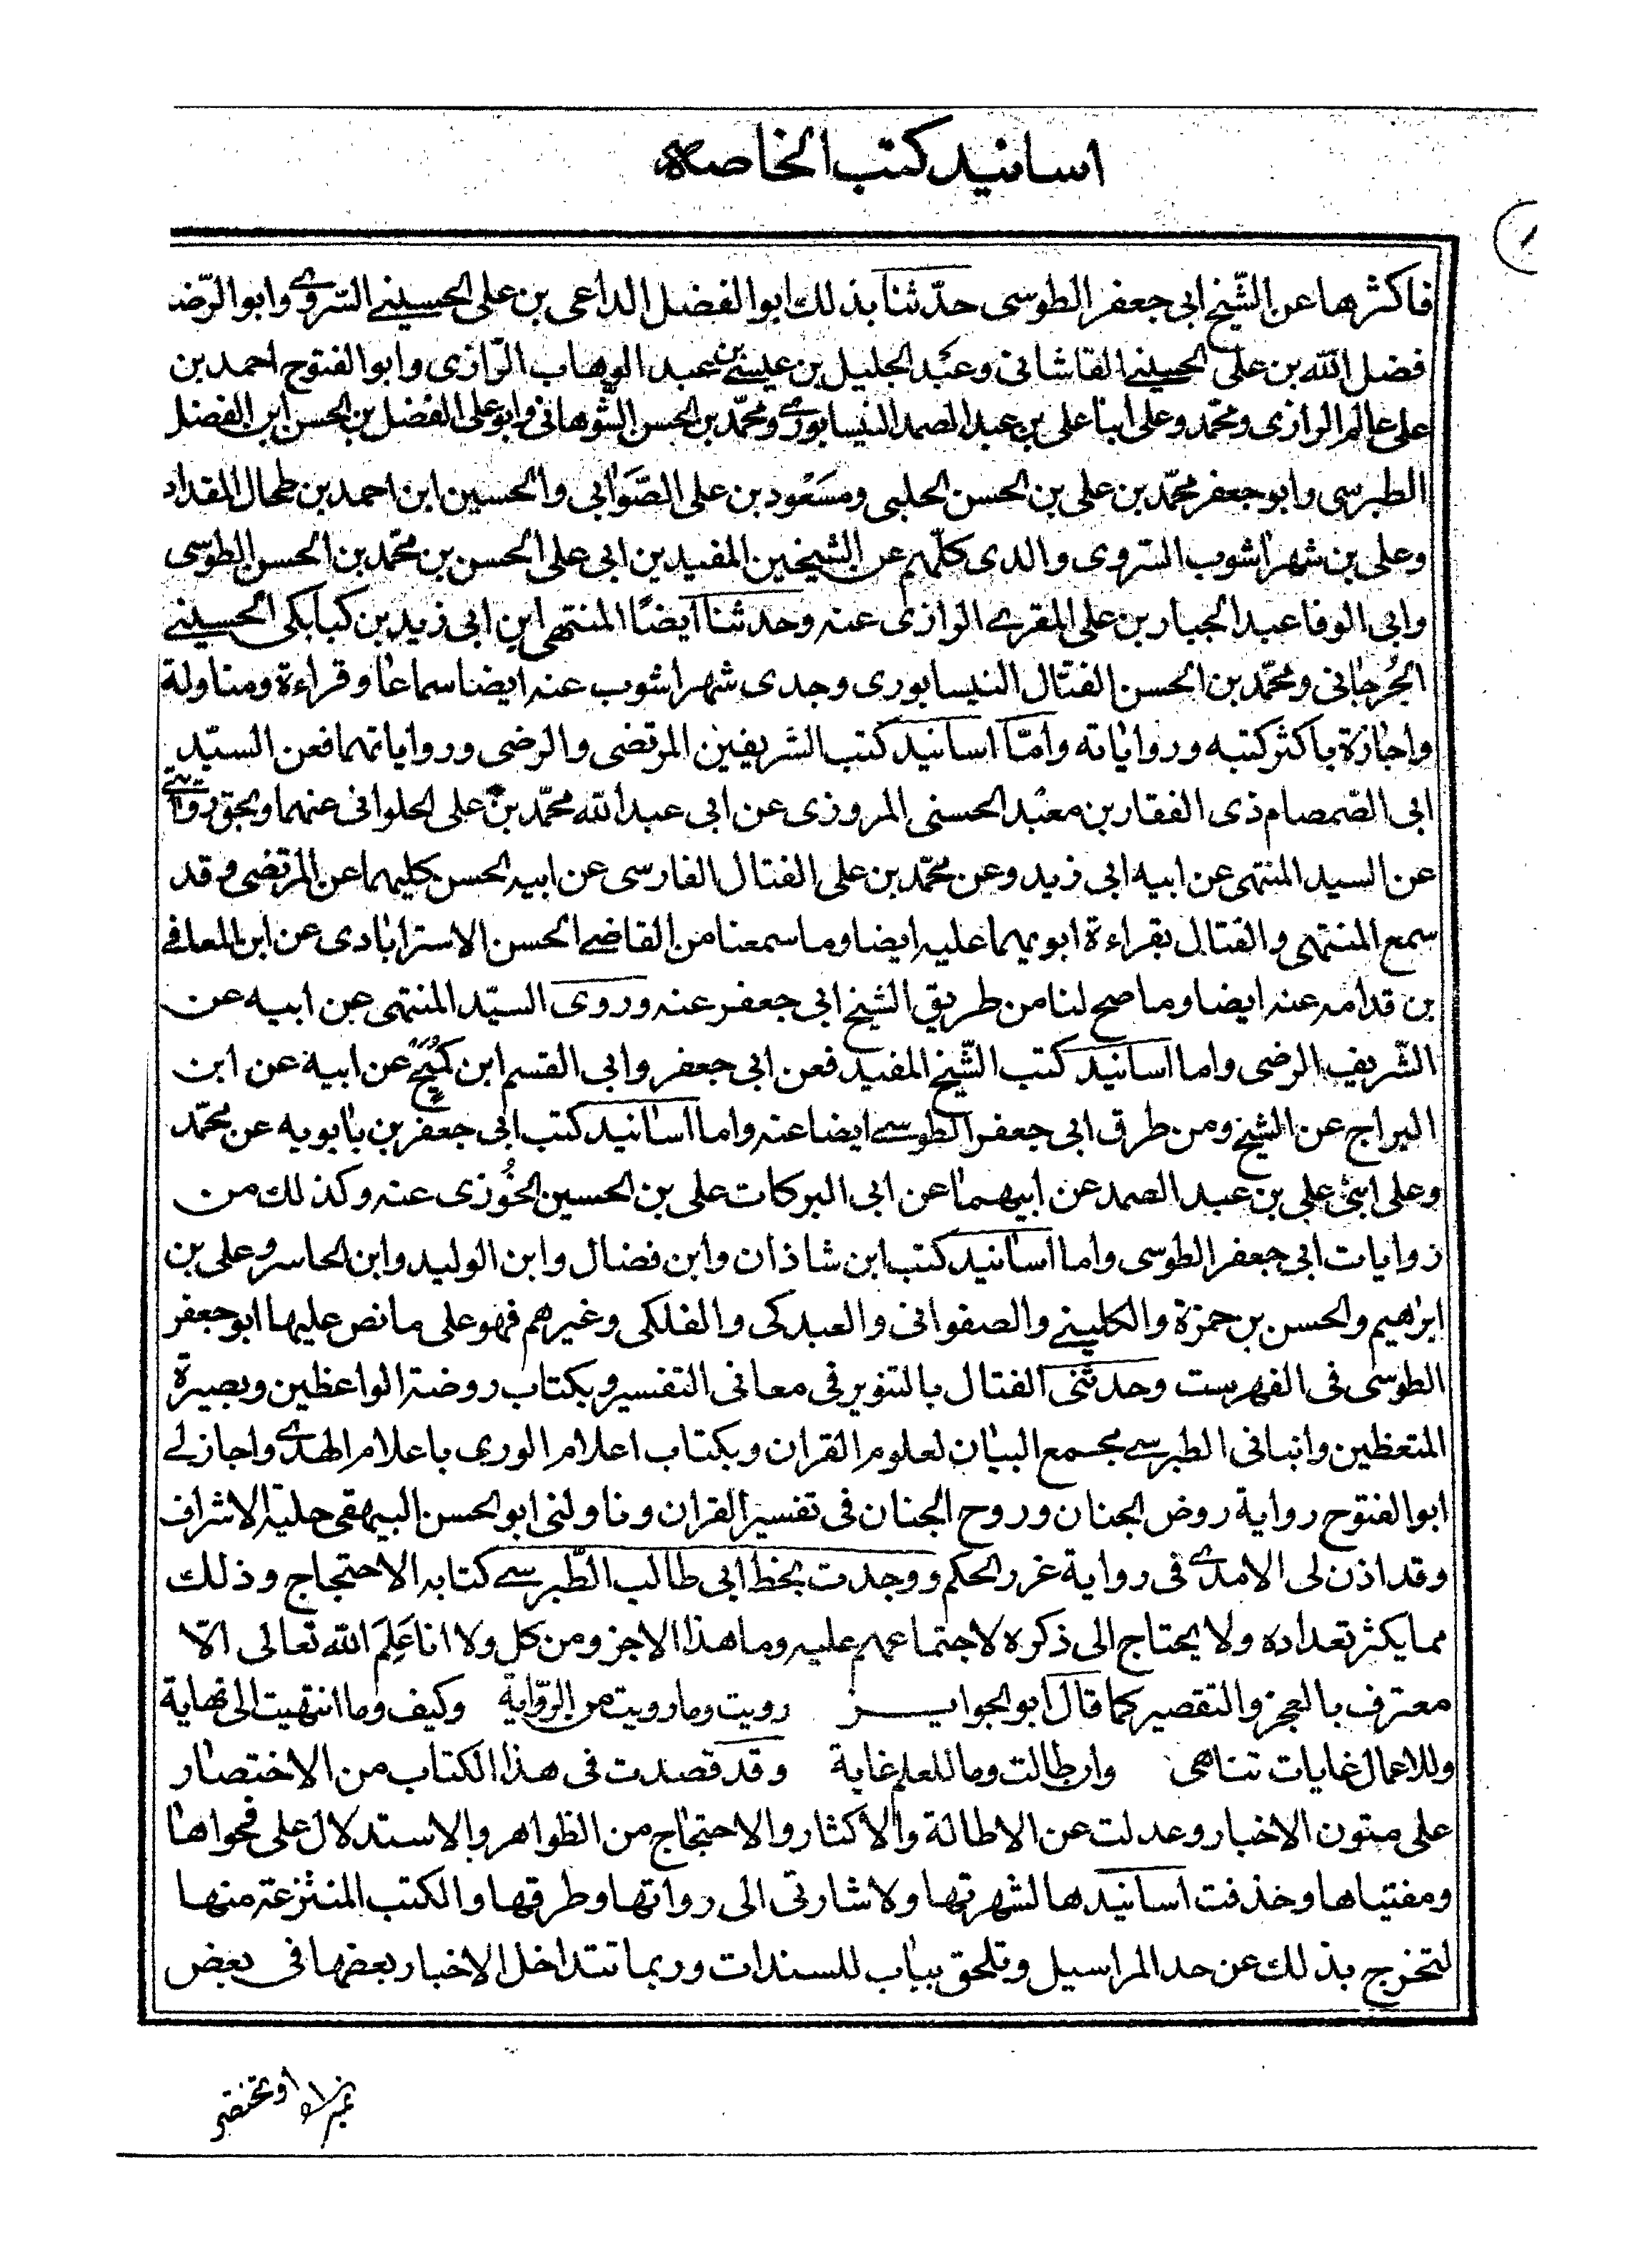 اسانيد كتب الخاصة
فاكثرها عن الشّيخ ابى جعفر الطوسى حدّثنا بذلك ابوالفضل الداعى بن على الحسينى السّروى وابوالرّضا
فضل الله بن على الحسينى القاشانى وعبد الجليل بن عيسى بن عبد الوهاب الرّازى وابوالفتوح احمد بن
على عالم الرازى ومحمّد وعلى ابنا على بن عبد الصمد النيسابورى ومحمّد بن الحسن الشّوهانى وابوعلى الفضل بن الحسن ابن الفضل
الطبرسى وابوجعفر محمّد بن على بن الحسن الحلبى ومسعود بن على الصّوابى والحسين ابن احمد بن طحال المقداد
وعلى بن شهراشوب السّروى والدى كلّهم عن الشيخين المفيدين ابى على الحسن بن محمّد بن الحسن الطوسى
وابى الوفا عبد الجبار بن على المقرى الرازى عنه وحدثنا ايضًا المنتهى ابن ابى زيد بن كبابكى الحسينى
الجُرجانى ومحمّد بن الحسن الفتّال النيسابورى وجدى شهراشوب عنه ايضا سماعا وقراءة ومناولة
واجازة باكثر كتبه ورواياته وامّا اسانيد كتب الشريفين المرتضى والرضى ورواياتهما فعن السيّد
ابى الصّمصام ذى الفقار بن معبد الحسنى المروزى عن ابى عبد الله محمّد بن على الحلوانى عنهما وبحق روايتى
عن السيد المنتهى عن ابيه ابى زيد وعن محمّد بن على الفتال الفارسى عن ابيه الحسن كليهما عن المرتضى وقد
سمع المنتهى والفتال بقراءة ابويهما عليه ايضا وما سمعنا من القاضى الحسن الاسترابادى عن ابن المعافى
بن قدامه عنه ايضا وما صح لنا من طريق الشيخ ابى جعفر عنه وروى السيّد المنتهى عن ابيه عن
الشّريف الرضى واما اسانيد كتب الشّيخ المفيد فعن ابى جعفر وابى القسم ابن كميح عن ابيه عن ابن
البراج عن الشيخ ومن طرق ابى جعفر الطوسى ايضا عنه واما اسانيد كتب ابى جعفر بن بابويه عن محمّد
وعلى ابنى على بن عبد الصمد عن ابيهما عن ابى البركات على بن الحسين الخُوزى عنه وكذلك من
روايات ابى جعفر الطوسى واما اسانيد كتب ابن شاذان وابن فضال وابن الوليد وابن الحاسر وعلى بن
ابراهيم والحسن بن حمزة والكلينى والصفوانى والعبدكى والفلكى وغيرهم فهو على ما نص عليها ابو جعفر
الطوسى فى الفهرست وحدثنى الفتال بالتنوير فى معانى التفسير وبكتاب روضة الواعظين وبصيرة
المتعظين وانبانى الطبرسى بمجمع البيان لعلوم القران وبكتاب اعلام الورى باعلام الهدى واجاز لى
ابوالفتوح رواية روض الجنان وروح الجنان فى تفسير القران وناولنى ابوالحسن البيهقى حلية الاشراف
وقد اذن لى الامدى فى رواية غرر الحكم ووجدت بخط ابى طالب الطّبرسى كتابه الاحتجاج وذلك
مما يكثر تعداده ولا يحتاج الى ذكره لاجتماعهم عليه وما هذا الاجز ومن كل ولا انا عَلِمَ الله تعالى الّا
معترف بالعجز والتقصير كما قال ابوالجوايز رويت وما رويت من الرّواية وكيف وما انتهيت الى نهاية
وللاعمال غايات تناهى وان طالت وما للعلم غاية وقد قصدت فى هذا الكتاب من الاختصار
على متون الاخبار وعدلت عن الاطالة والاكثار والاحتجاج من الظواهر والاستدلال على فحواها
ومفتياها وحذفت اسانيدها لشهرتها ولاشارتى الى رواتها وطرقها والكتب المنتزعة منها
لتخرج بذلك عن حد المراسيل وتلحق بباب للسندات وربما تتداخل الاخبار بعضها فى بعض